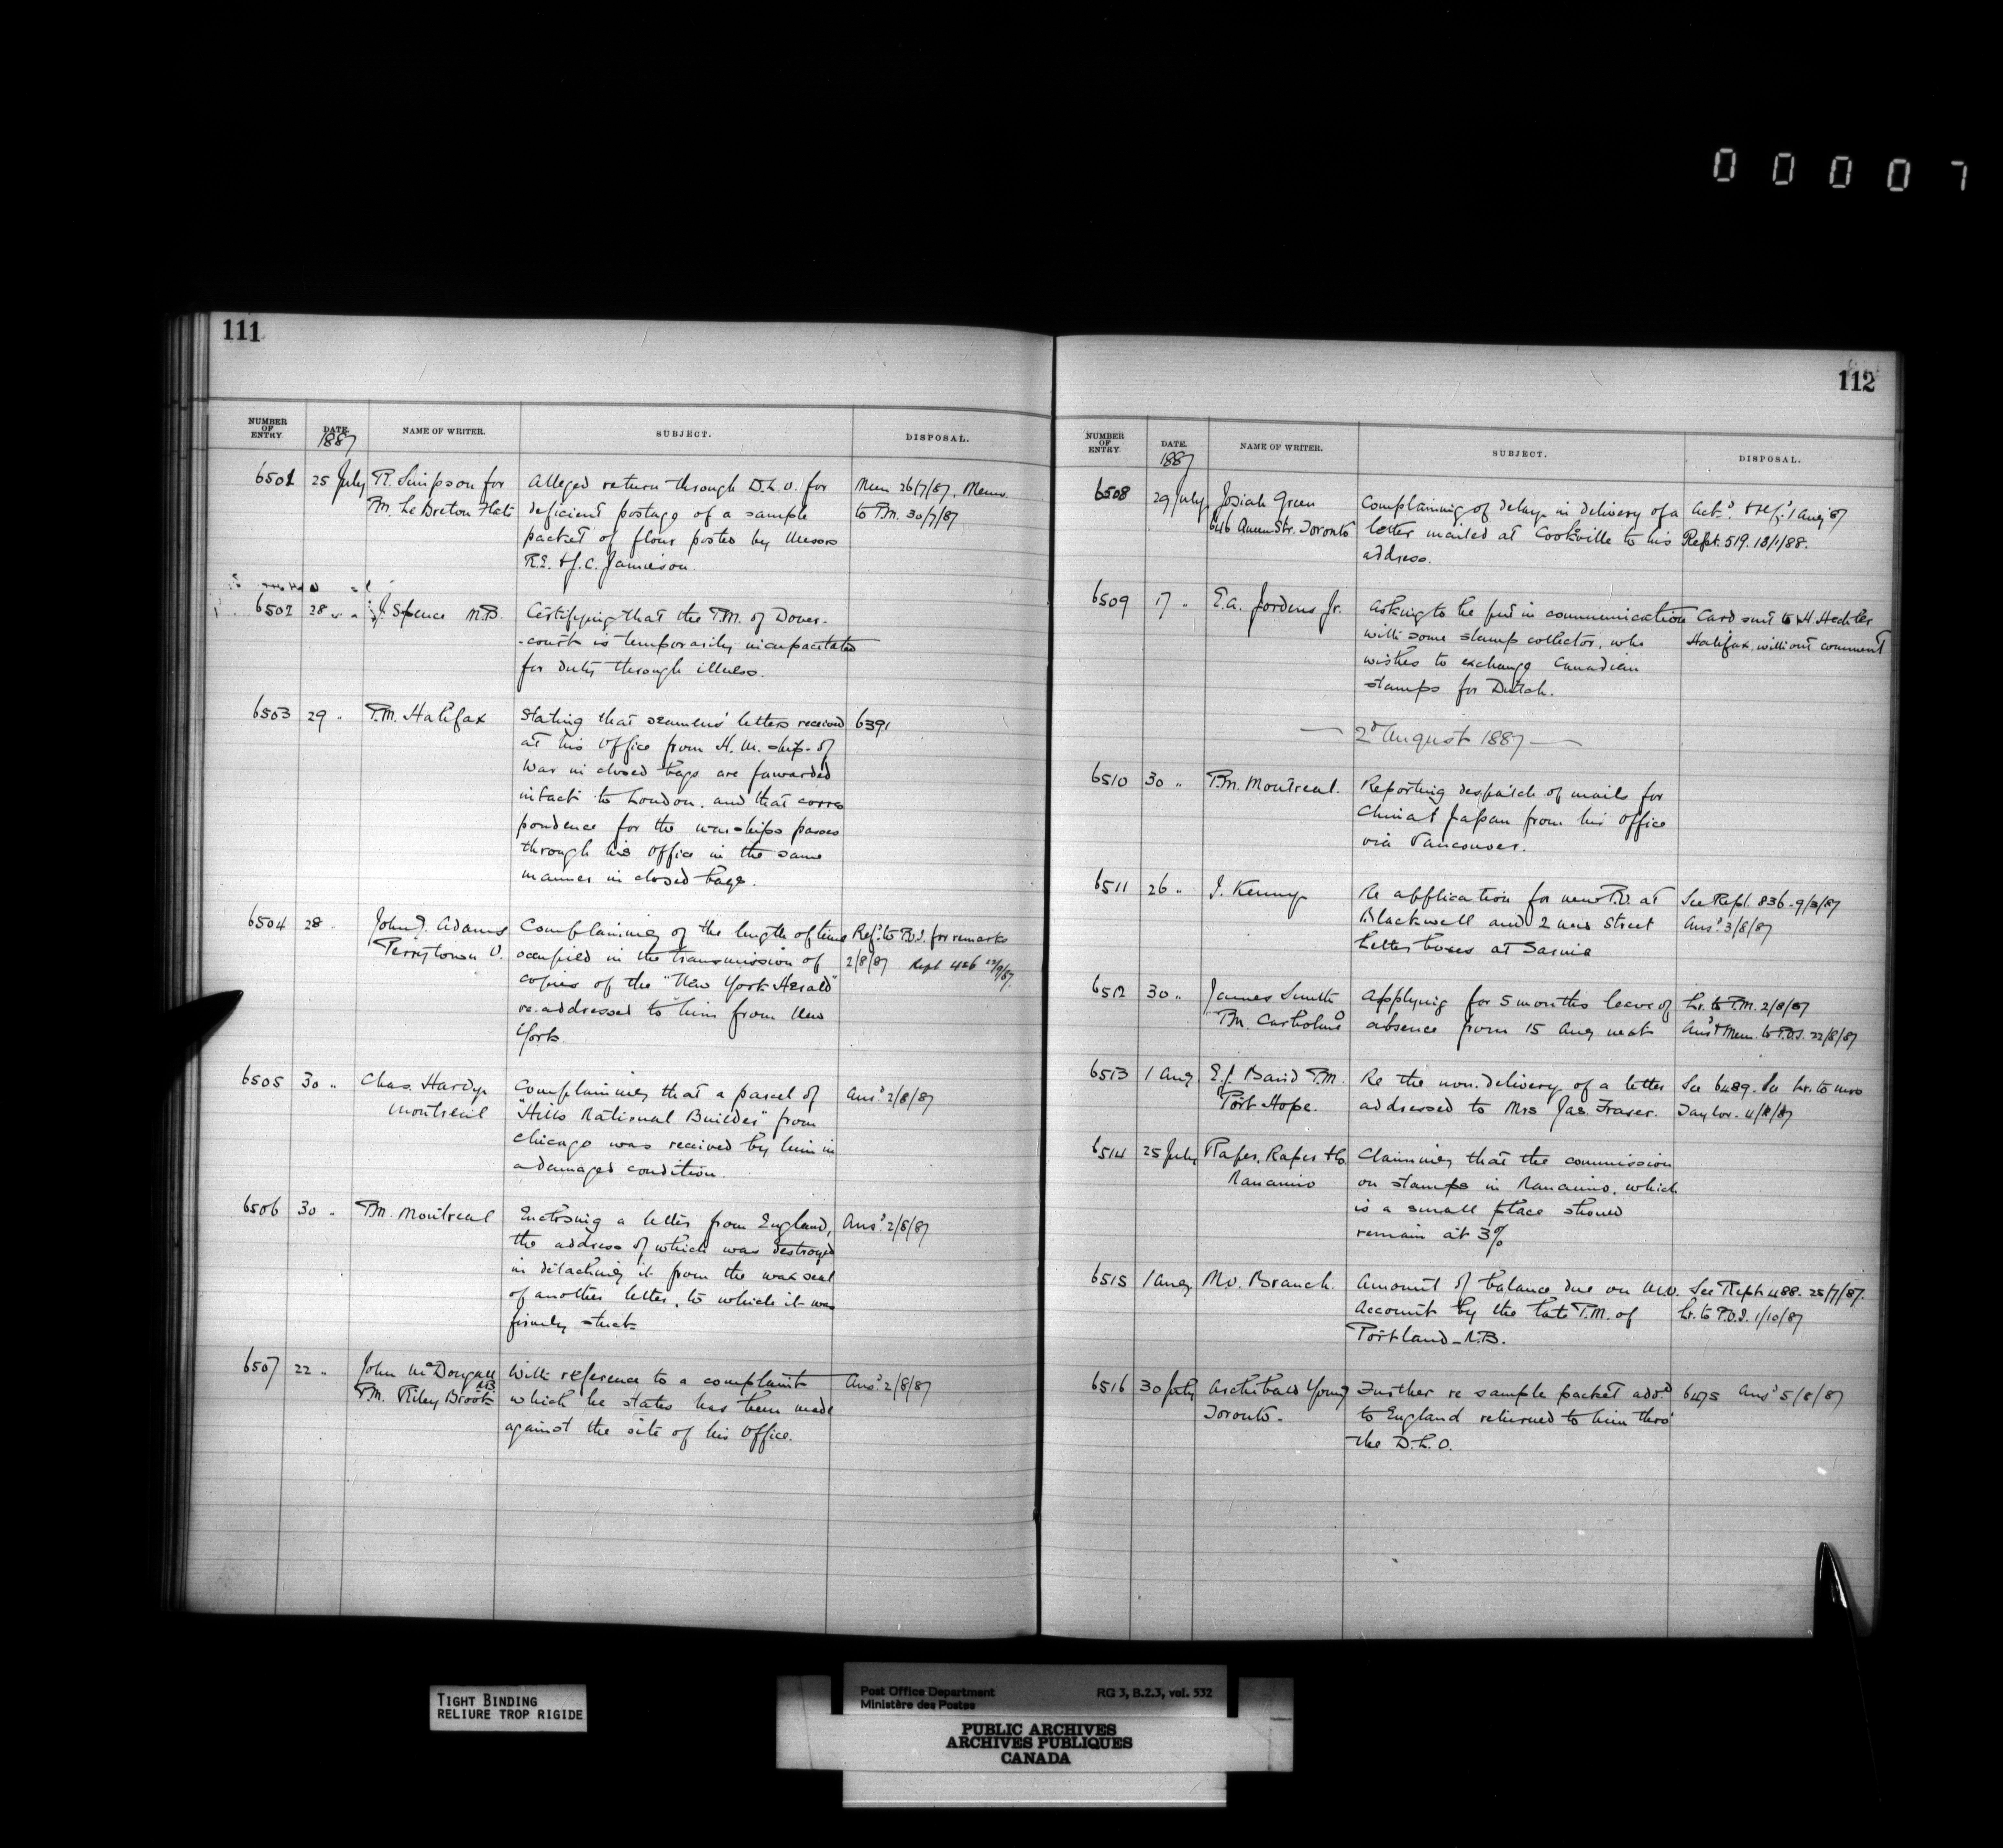 00007
111
NUMBER OF ENTRY. DATE. 1887 NAME OF WRITER. SUBJECT. DISPOSAL.
6501 25 July R. Simpson for Alleged return through D.L.O. for Mem 26/7/87. Memo.
P.M. Le Breton Flats deficient postage of a sample to P.M. 30/7/87
packet of flour posted by Messrs
R.E. & J.C. Jamieson.
6502 28 " J. Spence M.D. Certifying that the P.M. of Dover-
-court is temporarily incapacitated
for duty through illness.
6503 29 " P.M. Halifax Stating that seamens' letters received 6391
at his Office from H.M. ships of
War in closed bags are forwarded
intact to London, and that corres
pondence for the war-ships passes
through his office in the same
manner in closed bags.
6504 28 John J. Adams Complaining of the length of time Ref'd to P.O.I. for remarks
Perrytown O. occupied in the transmission of 2/8/87 Rept 426 /9/87.
copies of the "New York Herald"
re-addressed to him from New
York.
6505 30 " Chas. Hardy. Complaining that a parcel of Ans'd 2/8/87
Montreal "Hills National Builder" from
Chicago was received by him in
a damaged condition.
6506 30 " P.M. Montreal Enclosing a letter from England, Ans'd 2/8/87
the address of which was destroyed
in detaching it from the wax seal
of another letter, to which it was
firmly stuck.
6507 22 " John McDougall With reference to a complaint Ans'd 2/8/87
P.M. Riley Brook N.B. which he states has been made
against the site of his Office.
112
NUMBER OF ENTRY. DATE. 1887 NAME OF WRITER. SUBJECT. DISPOSAL.
6508 29 July Josiah Green Complaining of delay in delivery of a Ack'd & ref'd 1 Aug '87
646 Queen Str. Toronto letter mailed at Cookville to his Rept. 519. 13/1/88.
address.
6509 17 " E.A. Jordens Jr. Asking to be put in communication Card sent to H. Hechler
with some stamp collector, who Halifax, without comment
wishes to exchange Canadian
stamps for Dutch.
— 2d August 1887 —
6510 30 " P.M. Montreal. Reporting despatch of mails for
China & Japan from his Office
via Vancouver.
6511 26 " I. Kenny Re application for new P.O. at See Rept. 836. 9/3/87
Blackwell and 2 new Street Ans'd 3/8/87
Letter boxes at Sarnia
6512 30 " James Smith Applying for 5 months leave of Lr. to P.M. 2/8/87
P.M. absence from 15 Aug next Ans'd & Mem. to P.O.I. 22/8/87
6513 1 Aug E.J. Baird P.M. Re the non-delivery of a letter See 6489. Lr. to Mrs
Port Hope. addressed to Mrs Jas. Fraser. Taylor. 4/8/87
6514 25 July Raper, Raper & Co Claiming that the commission
Nanaimo on stamps in Nanaimo, which
is a small place should
remain at 3%
6515 1 Aug M.O. Branch. Amount of balance due on M.O. See Rept 488. 25/7/87.
Account by the late P.M. of Lr. to P.O.I. 1/10/87
Portland - N.B.
6516 30 July Archibald Young Further re sample packet add'd 6475 Ans'd 5/8/87
Toronto - to England returned to him thro'
the D.L.O.
TIGHT BINDING
RELIURE TROP RIGIDE
Post Office Department RG 3, B.2.3, vol. 532
Ministère des Postes
PUBLIC ARCHIVES
ARCHIVES PUBLIQUES
CANADA